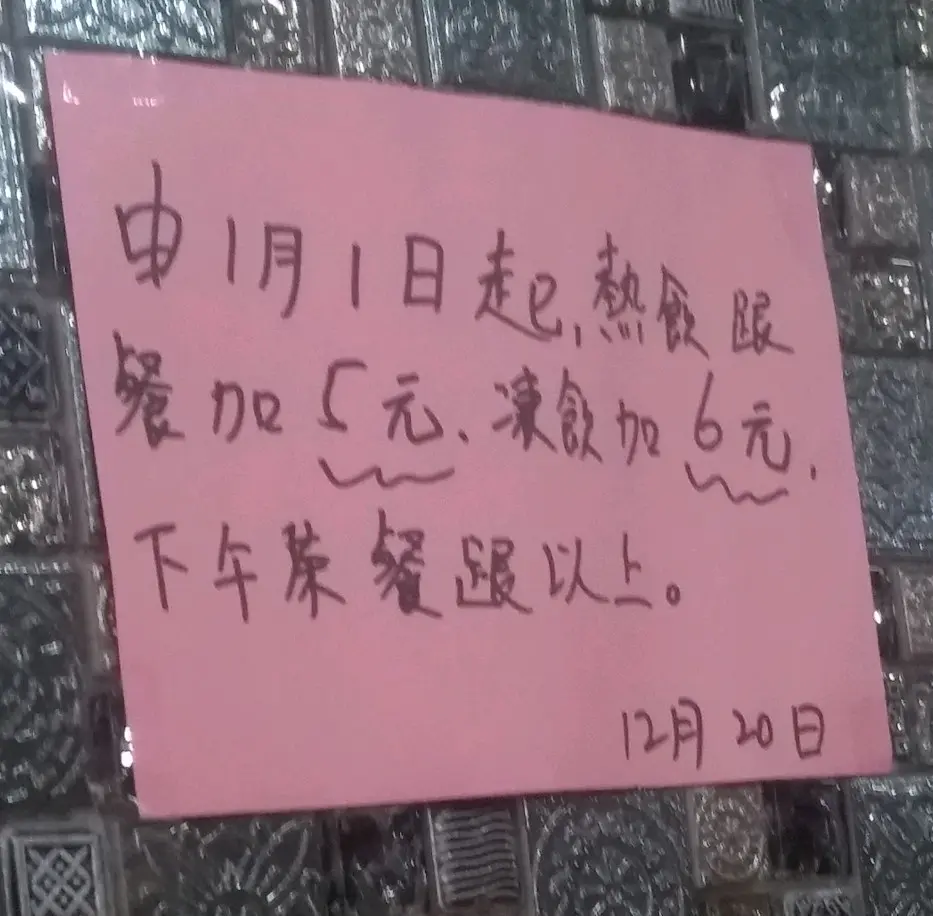 由1月1日起,熱飲跟
餐加5元.凍飲加6元.
下午茶餐跟以上。
12月20日